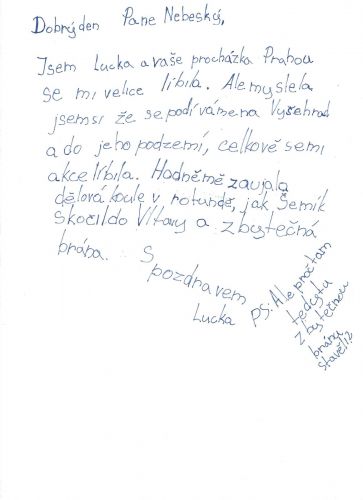 Dobrý den Pane Nebeský,
Jsem Lucka a vaše procházka Prahou
se mi velice líbila. Ale myslela
jsem si že se podíváme na Vyšehrad
a do jeho podzemí, celkově se mi
akce líbila. Hodně mě zaujala
dělová koule v rotundě, jak Šemík
skočil do Vltavy a zbytečná
brána. S
pozdravem
Lucka
PS: Ale proč tam
teda tu
zbytečnou
bránu
stavěli?